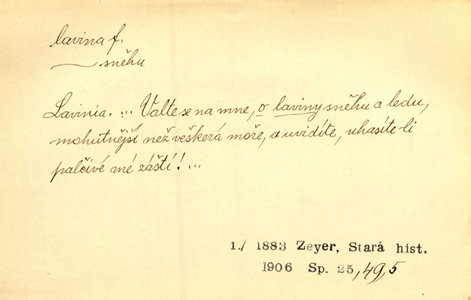 lavina f.
sněhu
Lavinia. ... Valte se na mne, o laviny sněhu a ledu,
mohutnější než veškerá moře, a uvidíte, uhasíte-li
palčivé mé záští! ...
1./ 1883 Zeyer, Stará hist.
1906 Sp. 25, 49, 5